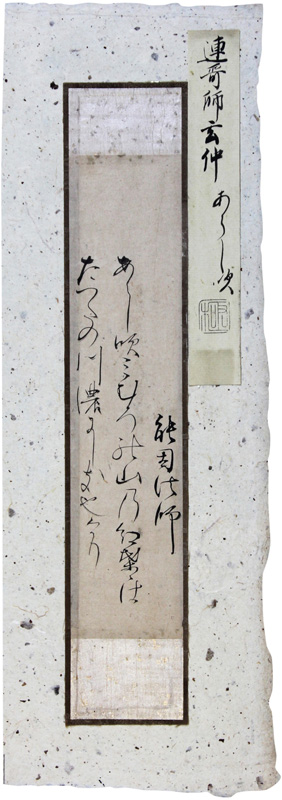 連哥師玄仲 あらし吹
能因法師
あらし吹みむろの山乃紅葉は
たつたの川濃にしき也けり